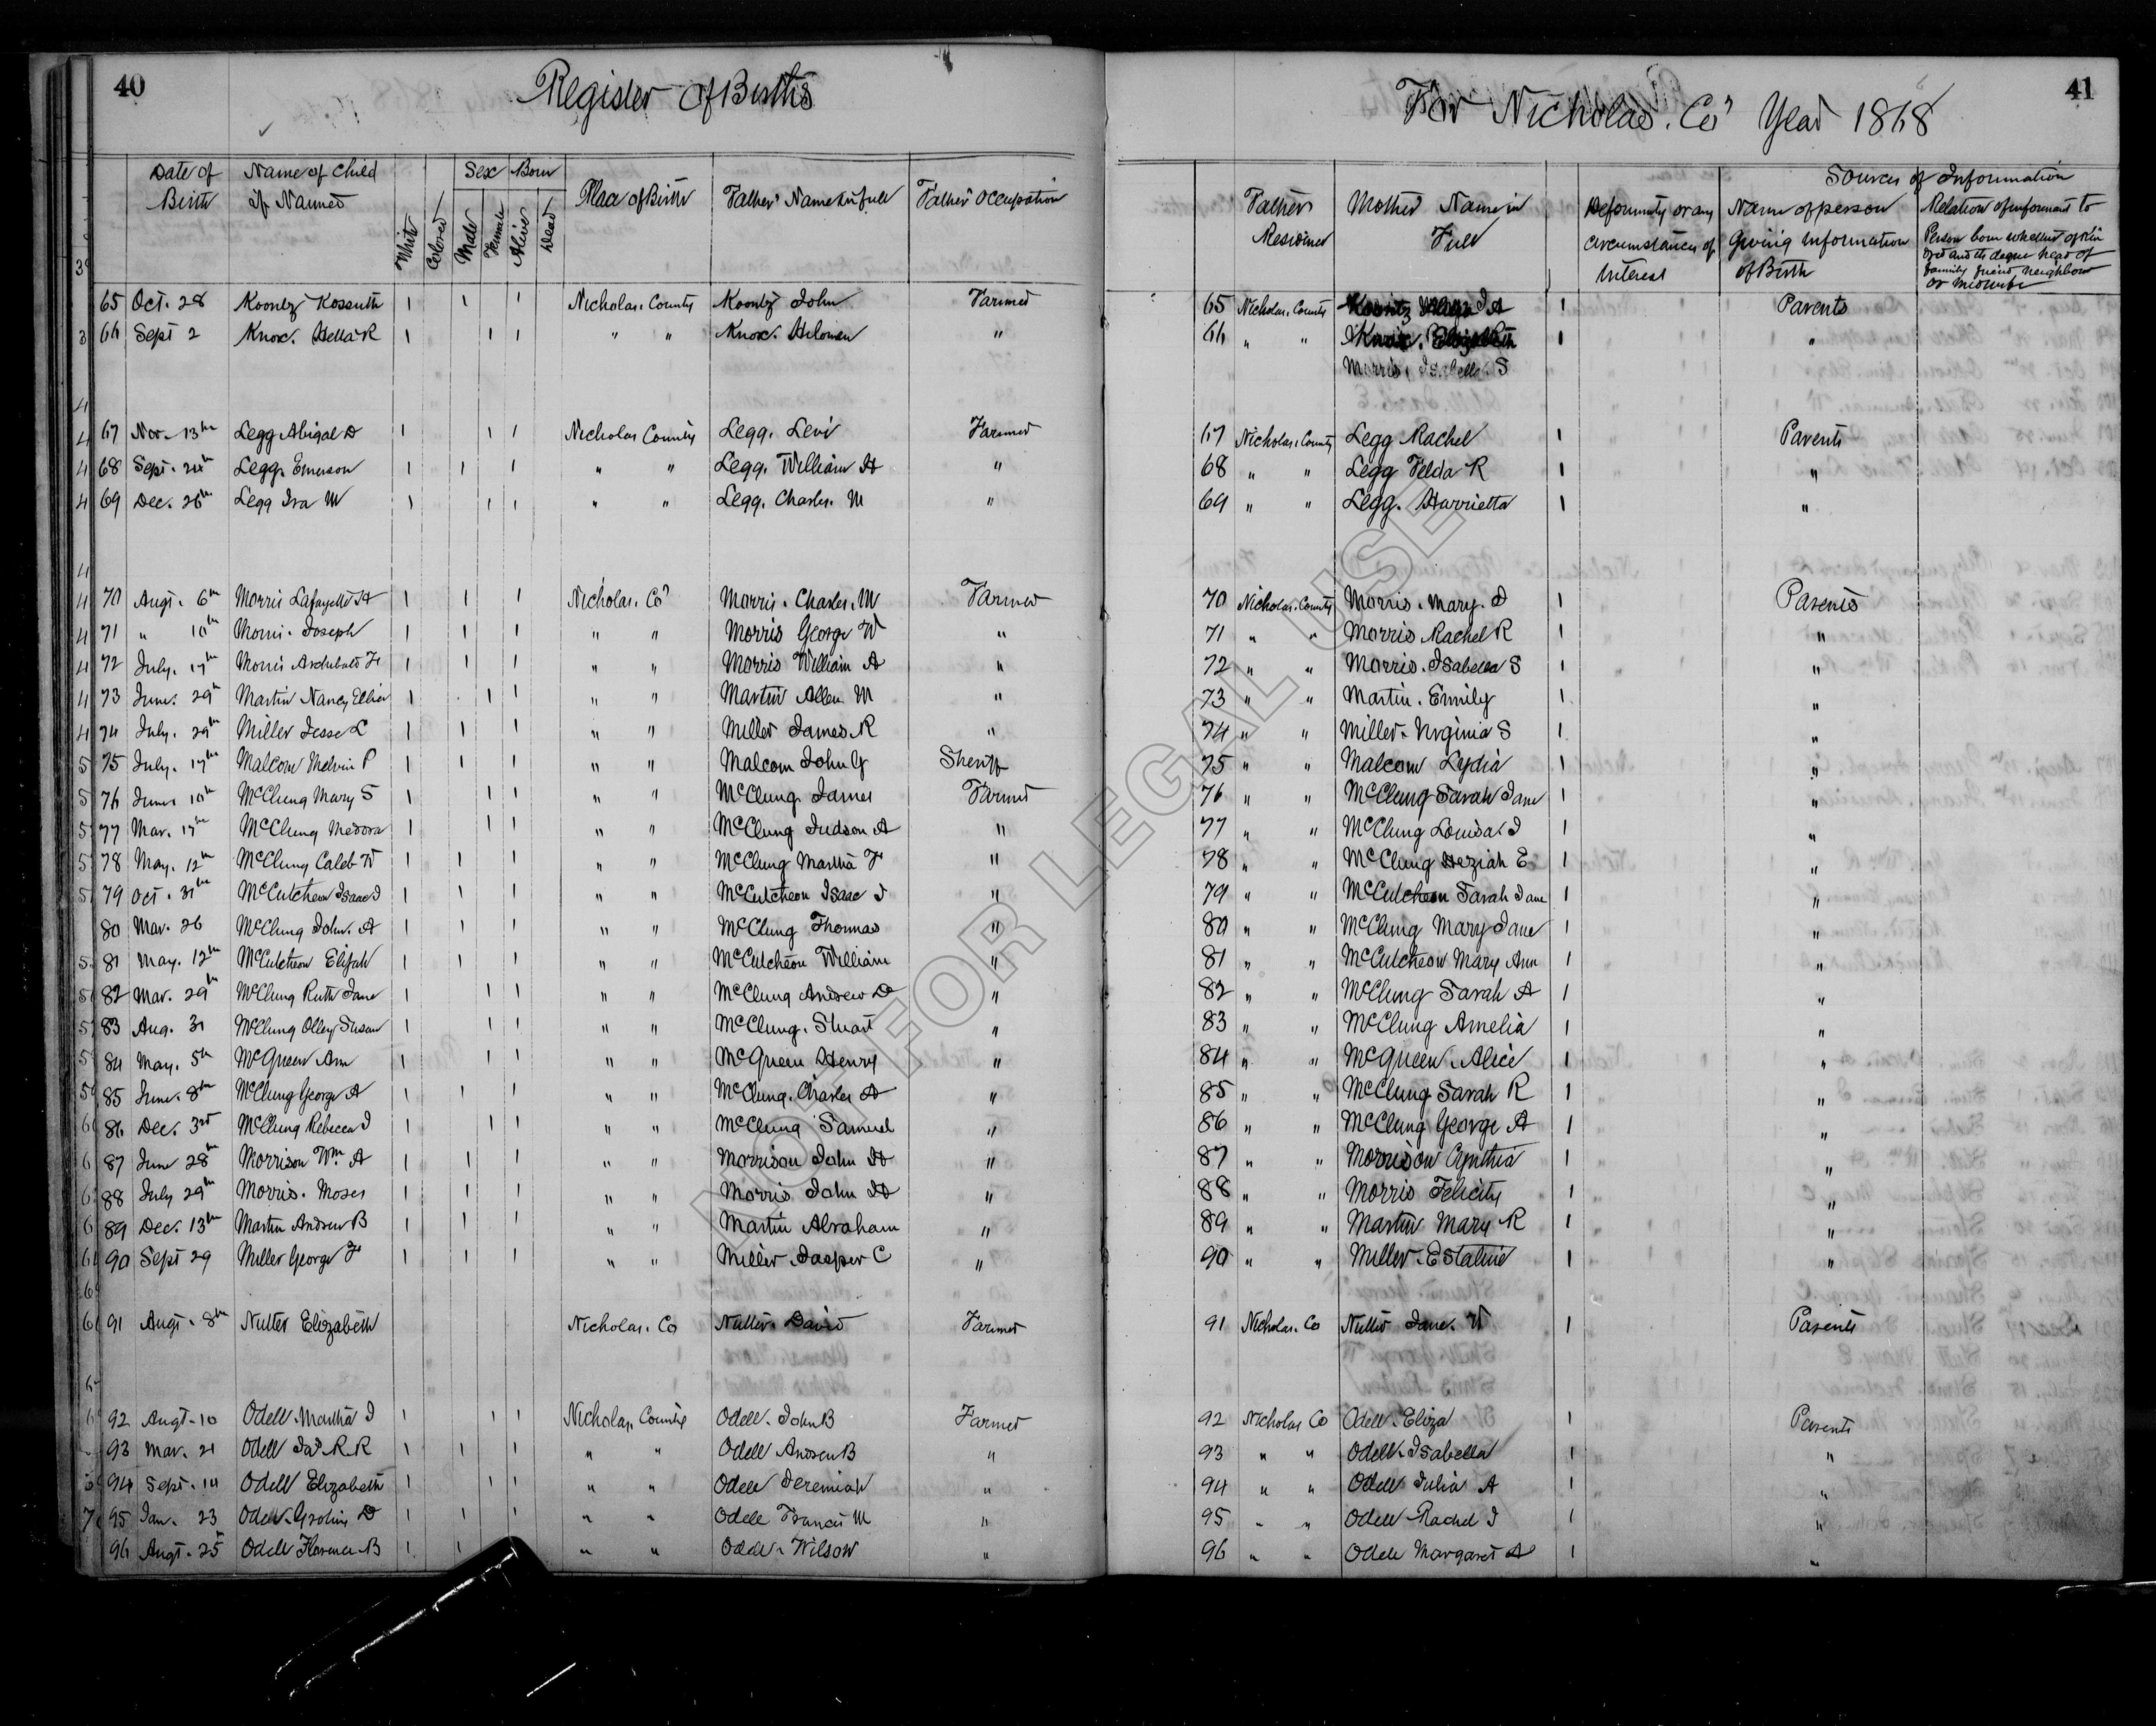 40
Register of Births
Date of Birth
Name of Child if Named
White
Colored
Sex
Male
Female
Born
Alive
Dead
Place of Birth
Father' Name in full
Father' Occupation
65 Oct. 28 Koontz Kossuth 1 1 1 Nicholas. County Koontz John Farmer
66 Sept 2 Knox. R 1 1 1 " " Knox. "
67 Nov. 13th Legg Abigal D 1 1 1 Nicholas County Legg. Levi Farmer
68 Sept. 24th Legg. Emerson 1 1 1 " " Legg. William H "
69 Dec. 26th Legg Ira M 1 1 1 " " Legg. Charles. M "
70 Augt. 6th Morris Lafayette H 1 1 1 Nicholas. Co Morris. Charles. M Farmer
71 " 10th Morris. Joseph 1 1 1 " " Morris George W "
72 July. 17th Morris Archibald F 1 1 1 " " Morris William A "
73 June. 29th Martin Nancy 1 1 1 " " Martin Allen M "
74 July. 29th Miller Jesse L 1 1 1 " " Miller James R "
75 July. 17th Malcom Melvin P 1 1 1 " " Malcom John G Sheriff
76 June 10th McClung Mary S 1 1 1 " " McClung James Farmer
77 Mar. 17th McClung Medora 1 1 1 " " McClung Judson A "
78 May. 12th McClung Caleb W 1 1 1 " " McClung Martha F "
79 Oct. 31th McCutcheon Isaac J 1 1 1 " " McCutcheon Isaac J "
80 Mar. 26 McClung John. A 1 1 1 " " McClung Thomas "
81 May. 12th McCutcheon Elijah 1 1 1 " " McCutcheon William "
82 Mar. 29th McClung Ruth Jane 1 1 1 " " McClung Andrew D "
83 Aug. 31 McClung Olley Susan 1 1 1 " " McClung. Stuart "
84 May. 5th McQueen Ann 1 1 1 " " McQueen Henry "
85 June. 8th McClung George A 1 1 1 " " McClung. Charles A "
86 Dec. 3rd McClung Rebecca J 1 1 1 " " McClung Samuel "
87 June 28th Morrison Wm. A 1 1 1 " " Morrison John H "
88 July 29th Morris. Moses 1 1 1 " " Morris John H "
89 Dec. 13th Martin Andrew B 1 1 1 " " Martin Abraham "
90 Sept 29 Miller George F 1 1 1 " " Miller Jasper C "
91 Augt. 8th Nutter Elizabeth Nicholas. Co Nutter David Farmer
92 Augt. 10 Odell Martha J 1 1 1 Nicholas. County Odell. John B Farmer
93 Mar. 21 Odell Jas R R 1 1 1 " " Odell Andrew B "
94 Sept. 14 Odell Elizabeth 1 1 1 " " Odell Jeremiah "
95 Jan. 23 Odell D 1 1 1 " " Odell Francis M "
96 Augt. 25th Odell Florence B 1 1 " " Odell. Wilson "
41
For Nicholas. Co Year 1868
Father Residence
Mother' Name in Full
Deformity or any circumstances of interest
Sources of Information
Name of person Giving Information of Birth
Relation of informant to Person born whether of kin and the degree head of family friend neighbour or midwife
65 Nicholas. County Koontz A 1 Parents
66 " " Knox. Elizabeth 1 "
Morris, Isabella. S
67 Nicholas. County Legg Rachel 1 Parents
68 " " Legg Velda R 1 "
69 " " Legg. Harrietta 1 "
70 Nicholas. County Morris. Mary. J 1 Parents
71 " " Morris Rachel R 1 "
72 " " Morris. Isabella S 1 "
73 " " Martin. Emily 1 "
74 " " Miller. Virginia S 1 "
75 " " Malcom Lydia 1 "
76 " " McClung Sarah Jane 1 "
77 " " McClung Louisa. J 1 "
78 " " McClung Heziah E 1 "
79 " " McCutcheon Sarah Jane 1 "
80 " " McClung Mary Jane 1 "
81 " " McCutcheon Mary Ann 1 "
82 " " McClung Sarah A 1 "
83 " " McClung Amelia 1 "
84 " " McQueen. Alice 1 "
85 " " McClung Sarah R 1 "
86 " " McClung George A 1 "
87 " " Morrison Cynthia 1 "
88 " " Morris Felicity 1 "
89 " " Martin Mary R 1 "
90 " " Miller. Estaline 1 "
91 Nicholas. Co Nutter Jane. W 1 Parents
92 Nicholas Co Odell. Eliza 1 Parents
93 " " Odell. Isabella 1 "
94 " " Odell Julia A 1 "
95 " " Odell Rachel J 1 "
96 " " Odell Margaret A 1 "
NOT FOR LEGAL USE